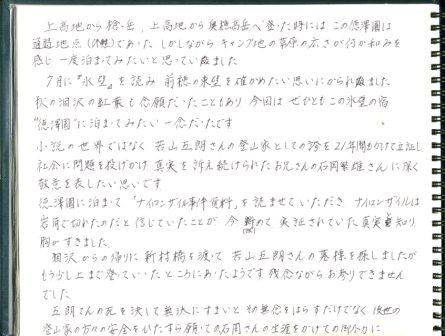 上高地から槍ヶ岳、上高地から奥穂高岳へ登った時には この徳澤園は
通過地点(休憩)であった しかしながら キャンプ地の草原の広さが何か和みを
感じ 一度泊まってみたいと思っていました
7月に『氷壁』を読み 前穂の東壁を確かめたい思いにかられました
秋の涸沢の紅葉も念願だったこともあり 今回は ぜひともこの氷壁の宿
"徳澤園"に泊まってみたい一念だったです
小説の世界ではなく 若山五朗さんの登山家としての誇を21年間もかけて立証し
社会に問題を投げかけ 真実を訴え続けられたお兄さんの石岡繁雄さんに深く
敬意を表したい思いです
徳澤園に泊まって「ナイロンザイル事件資料」を読ませていただき ナイロンザイルは
岩角で切れたのだと信じていたことが 今 実証されていた真実を知り
胸がすきました
涸沢からの帰りに新村橋を渡って 若山五朗さんの墓標を探しましたが
もう少し上まで登っていったところにあったようです 残念ながらお参りできません
でした
五朗さんの死を決して無駄にすまいと その無念をはらすだけでなく 後世の
登山家の方々の安全をひたすら願っての石岡さんの生涯をかけての